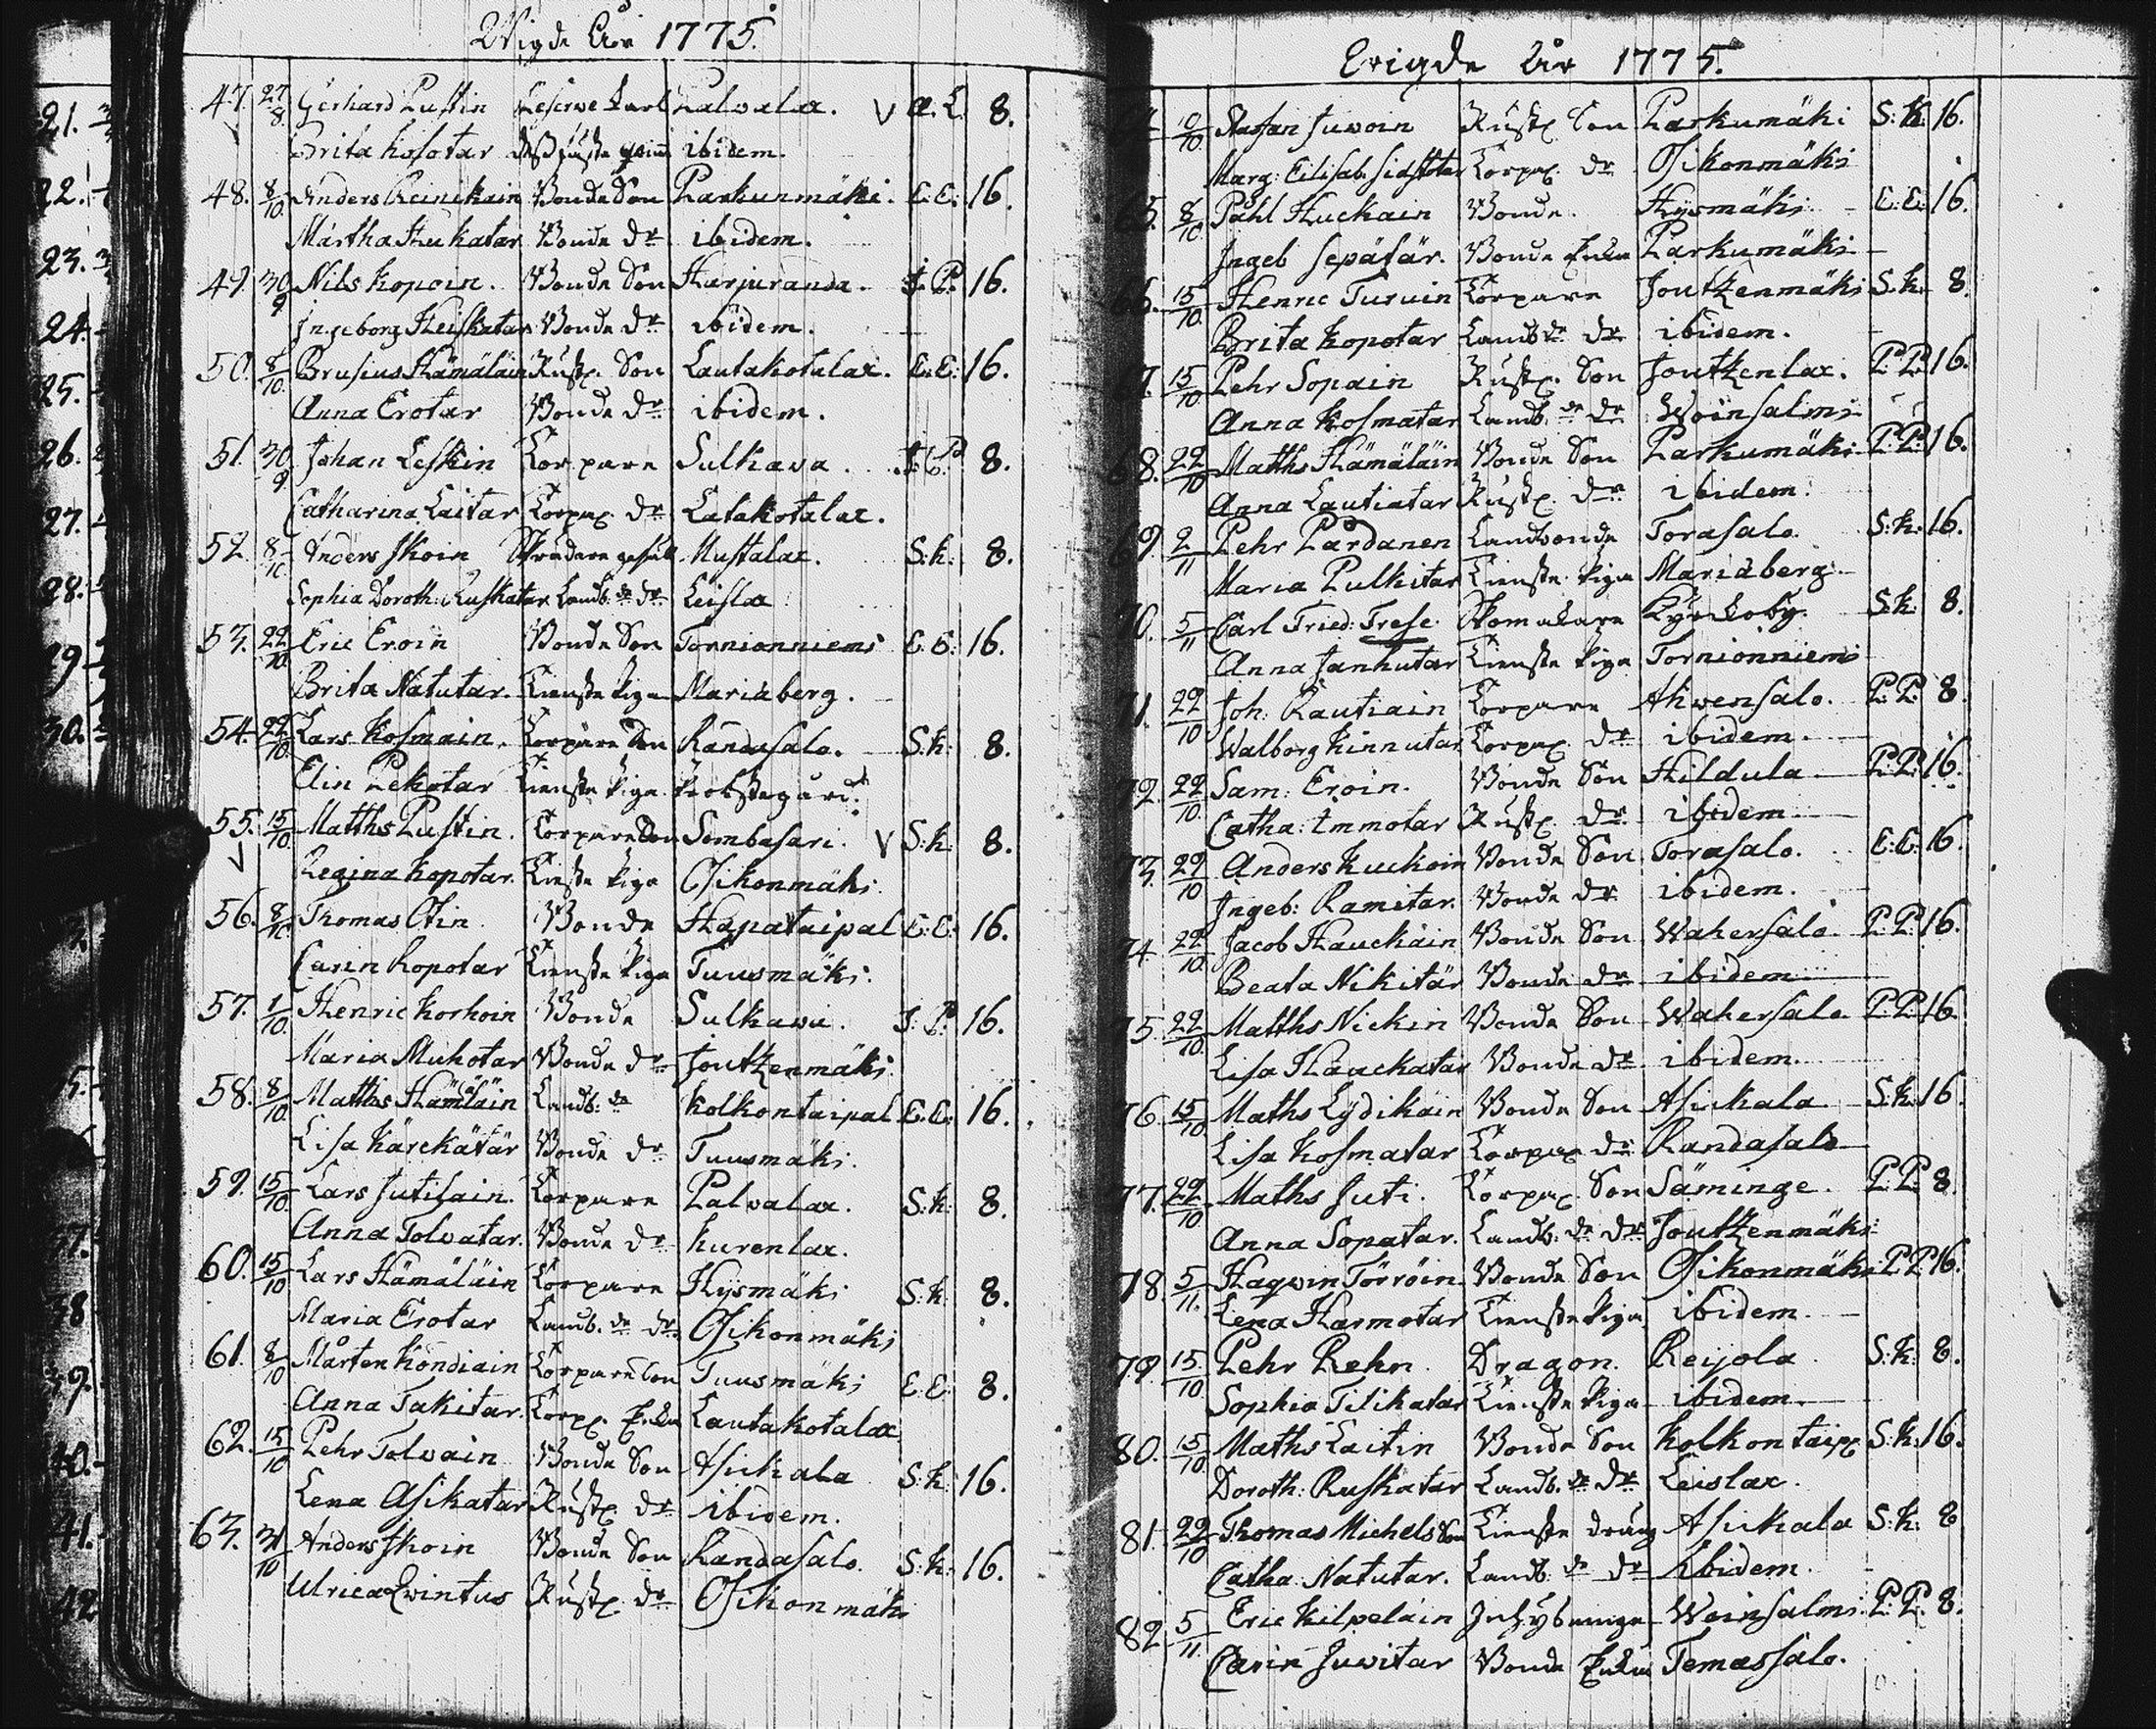 Wigde År 1775.
47. 27/8 Gerhard Pustin Reserve karl Palvalax. V A.L. 8.
Brita kosotar ibidem.
48. 8/10 Anders Reinikain Bonde Son Parkunmäki. E:E: 16.
Märtha Hukatar Bonde dr ibidem.
49. 30/9 Nils kopoin. Bonde Son Harjuranda. J.P. 16.
Ingeborg Heiskatar Bonde dr ibidem.
50. 8/10 Brusius Hämäläin Rustp. Son Lautakotalax. E:E: 16.
Anna Erotar Bonde dr ibidem.
51. 30/9 Johan Leskin Torpare Sulkava. J.P. 8.
Catharina Laitar Torpar dr Latakotalax.
52. 8/10 Anders Ikoin Skrädare gesäll Mustalax. S:k: 8.
Sophia Doroth: Ruskatar Landb:de dr Leislax
53. 22/10 Eric Eroin Bonde Son Tornionniemi E.E: 16.
Brita Natutar. Tienste Piga Mariäberg.
54. 22/10 Lars Kosmain. Torpare Son Randasalo. S.k: 8.
Elin Pekotar Tienste Piga Probstegård.
55. 15/10 Matths Pustin. Torpare Son Sombasari. V S:k: 8.
Regina Kopotar. Tienste Piga Osikonmäki.
56. 8/10 Thomas Otin Bonde Hapataipal E:E: 16.
Carin kopotar Tienste Piga Tuusmäki.
57. 1/10 Henric korhoin Bonde Sulkava. J.P. 16.
Maria Muhotar Bonde dr Joutzenmäki
58. 8/10 Matths Hämäläin Landb:de kolkontaipal E:E: 16.
Lisa kärckätär Bonde dr Tuusmäki.
59. 15/10 Lars Jutilain. Torpare Palvalax. S:k: 8.
Anna Tolvatar. Bonde dr kurenlax.
60. 15/10 Lars Hämäläin Torpare Hysmäki S:k: 8.
Maria Erotar Landb.de dr Osikonmäki
61. 8/10 Mårten köndiain Torpare Son Tuusmäki E:E: 8.
Anna Takitar. Torp. Enka Lautakotalax
62. 15/10 Pehr Tolvain Bonde Son Asickala S:k: 16.
Lena Asikatar Rustp. dr ibidem.
63. 31/10 Anders Ikoin Bonde Son Randasalo. S.k. 16.
Ulrica Qvintus Rustp. dr Osikonmäki
Wigde År 1775.
64. /10 Staffan Juvoin Rustp. Son Parkumäki S:k: 16.
Marg: Elisab. Sidstotar Torpar dr Osikonmäki
65. 8/10 Påhl Huckain Bonde Hysmäki E:E: 16.
Ingeb Sepäsär. Bonde Enka Parkumäki
66. 15/10 Henric Turuin Torpare Joutzenmäki S:k: 8.
Brita kopotar Landb:de dr ibidem.
67. 15/10 Pehr Sopain Rustp. Son Joutzenlax. P:P: 16.
Anna Kosmatar Landb:de dr Woinsalmi
68. 22/10 Matths Hämäläin Bonde Son Parkumäki P:P: 16.
Anna Lautiatar Rustp. dr ibidem.
69. 2/11 Pehr Pardanen Landbonde Torasalo S:k: 16.
Maria Pulkitar Tienste Piga Mariäberg
70. 5/11 Carl Fried: Trese Skomakare Kyrckoby. S:k: 8.
Anna Janhutar Tienste Piga Tornionniemi
71. 22/10 Joh: Rautiain Torpare Ahvensalo. P.P. 8.
Walborg kinnutar Torpar dr ibidem.
72. 22/10 Sam: Eroin. Bonde Son Hildula P:P: 16.
Catha: Immotar Rustp. dr ibidem
73. 29/10 Anders kuckoin Bonde Son Torasalo. E:E: 16.
Ingeb: Ramitar. Bonde dr ibidem.
74. 22/10 Jacob Hauckain Bonde Son Wahersalo P.P. 16.
Beata Nikitär Bonde dr ibidem
75. 22/10 Matths Nickin Bonde Son Wahersalo P:P: 16.
Lisa Hauckatar Bonde dr ibidem.
76. 15/10 Maths Lydikäin Bonde Son Asickala S:k: 16.
Lisa kosmatar Torpar dr Randasalo
77. 22/10 Maths Juti. Torpar Son Säminge. P.P. 8.
Anna Sopatar. Landb:de dr Joutzenmäki
78. 5/11. Hagvin Törröin Bonde Son Osikonmäki P.P. 16.
Lena Harmotar Tienste Piga ibidem.
79. 15/10 Pehr Rehn. Dragon. Reijola S:k: 8.
Sophia Tilikatar Tienste Piga ibidem.
80. 15/10 Maths Laitin Bonde Son kolkontaip. S:k: 16.
Doroth: Ruskatar Landb.de dr Leislax.
81. 22/10 Thomas Michels Son Tienste dräng Asickala S:k: 8
Catha: Natutar. Landb.de dr ibidem.
82. 5/11 Eric kilpeläin Inhysinge Woinsalmi. P.P. 8.
Carin Juvitar Bonde Enka Temassalo.
21.
22.
23.
24.
25.
26.
27.
28.
29
30.
37.
38
39.
40.
41.
42